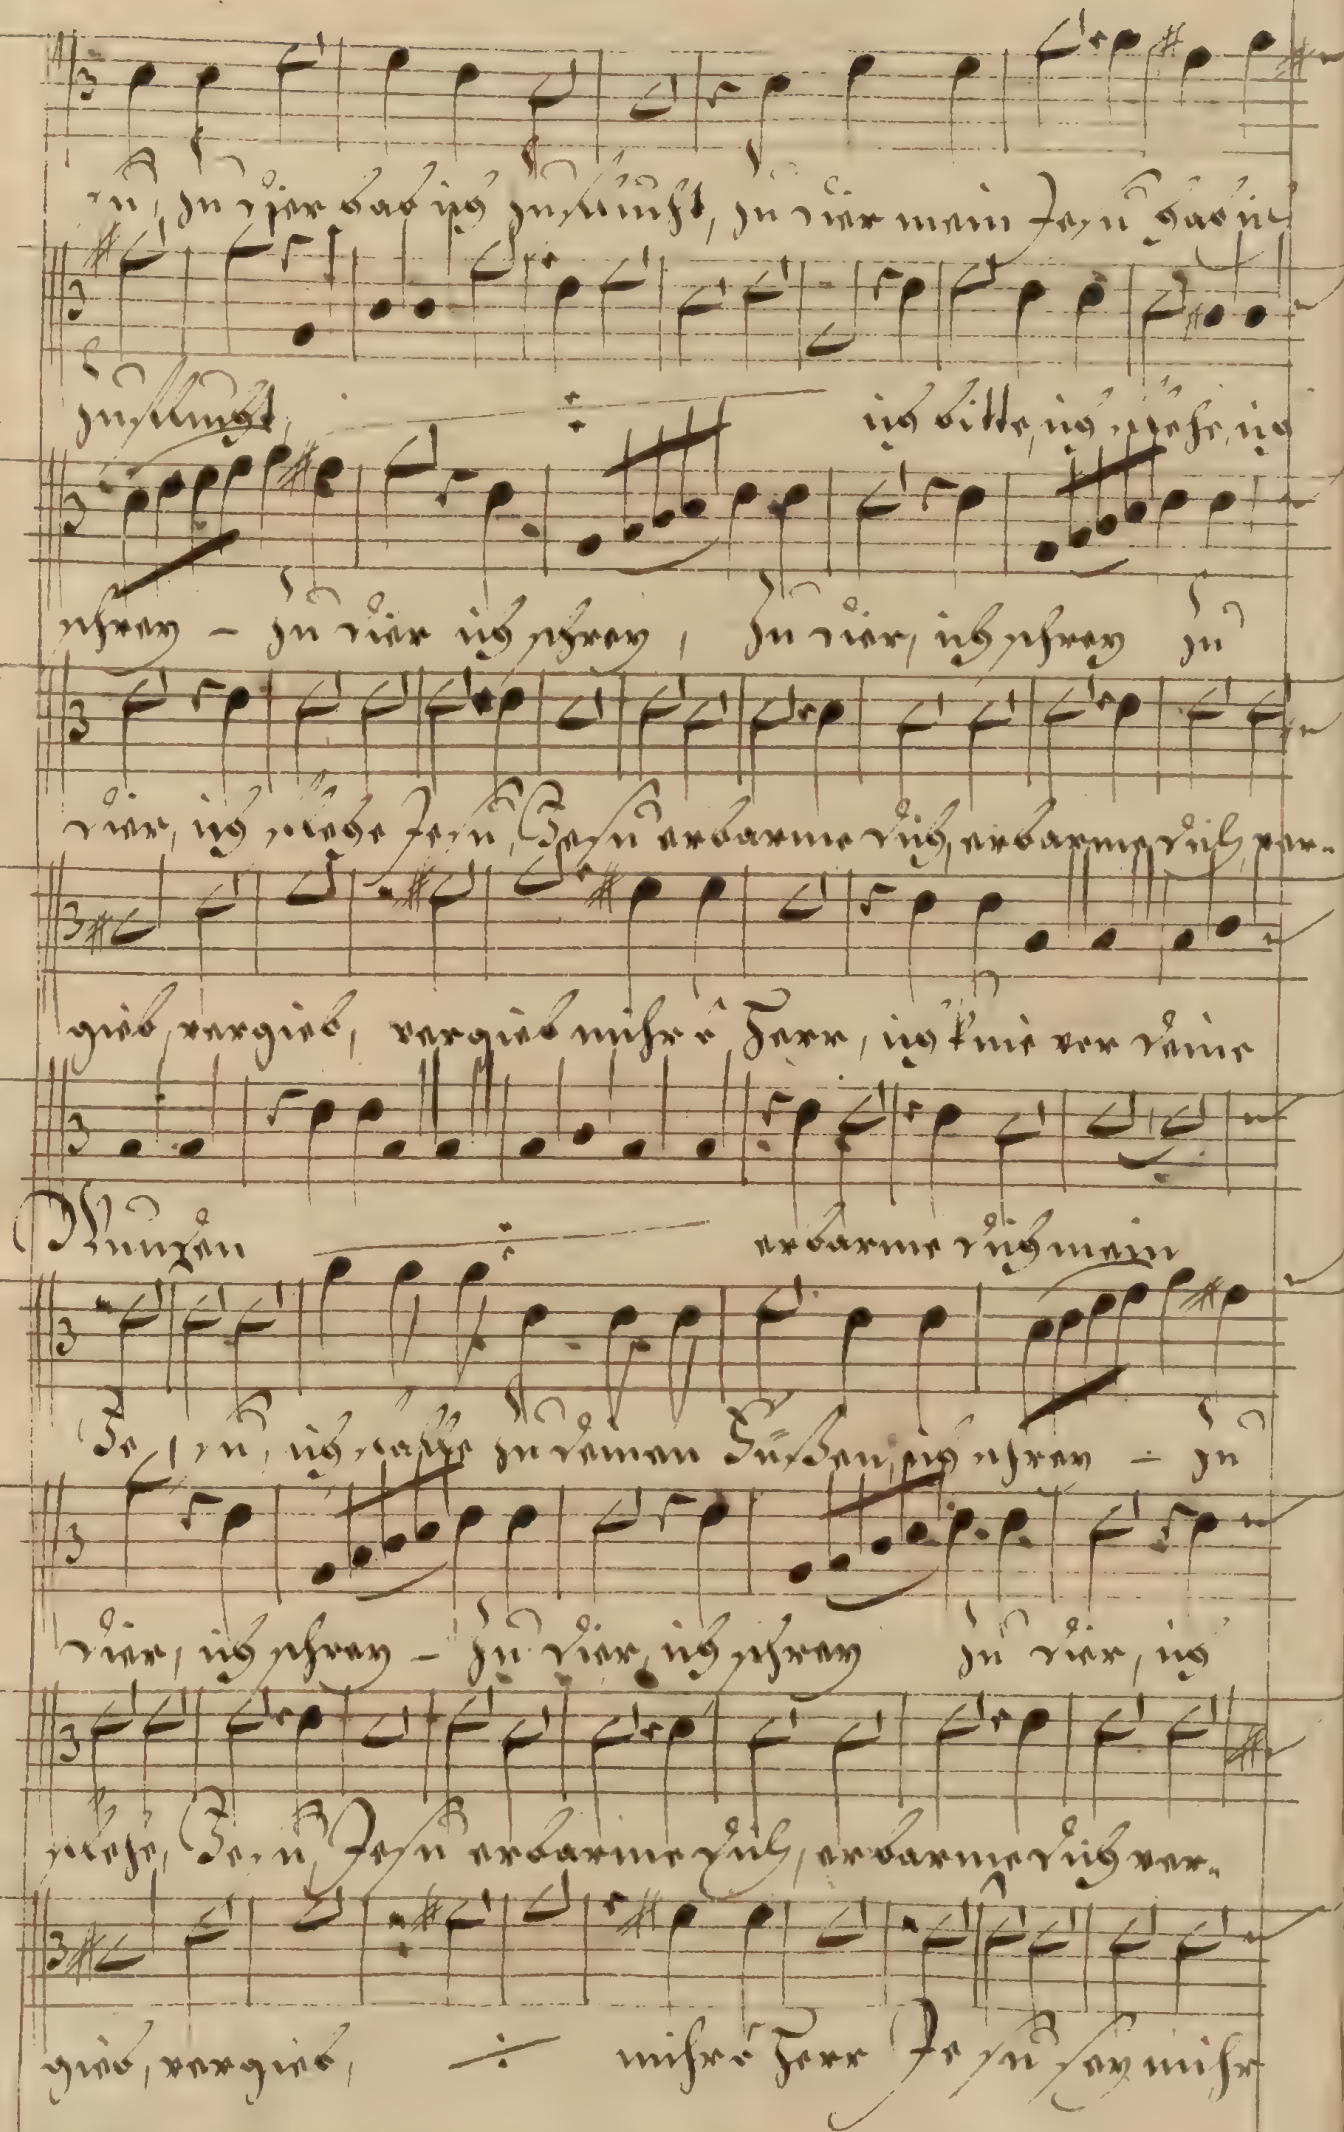 sů, zů dier hab ich zůflůcht, zů dier mein Jesů hab ich
zůflůcht, ich bitte, ich flehe, ich
schrey – zů dier ich schrey, zů dier, ich schrey zů
dier, ich flehe Jesů, Jesů erbarme dich, erbarme dich, ver-
gieb, vergieb, vergieb mihr ô Herr, ich knie vor deine
Wunden erbarme dich mein
Jesů, ich falle zů deinen Füßen, ich schrey – zů
dier, ich schrey – zů dier, ich schrey zů dier, ich
flehe, Jesů, Jesů erbarme dich, erbarme dich ver-
gieb, vergieb, mihr ô Herr Jesů sey mihr